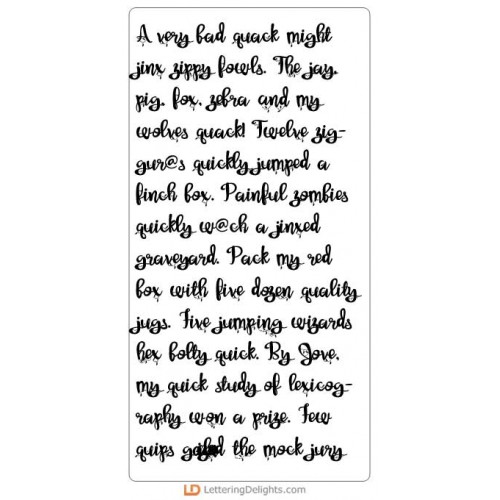 A very bad quack might
jinx zippy fowls. The jay,
pig, fox, zebra and my
wolves quack! Twelve zig-
gur@s quickly jumped a
finch box. Painful zombies
quickly w@ch a jinxed
graveyard. Pack my red
box with five dozen quality
jugs. Five jumping wizards
hex bolty quick. By Jove,
my quick study of lexicog-
raphy won a prize. Few
quips the mock jury
LD LetteringDelights.com